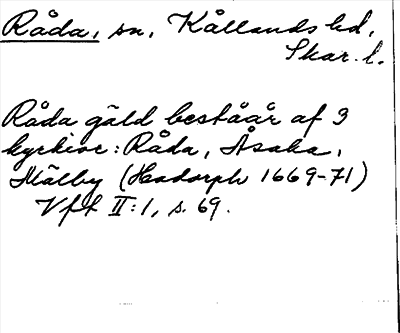 Råda, sn, Kållands hd,
Skar. l.
Råda gäld består af 3
kyrkior: Råda, Åsaka,
Mälby (Hadorph 1669-71)
Vff II:1, s. 69.